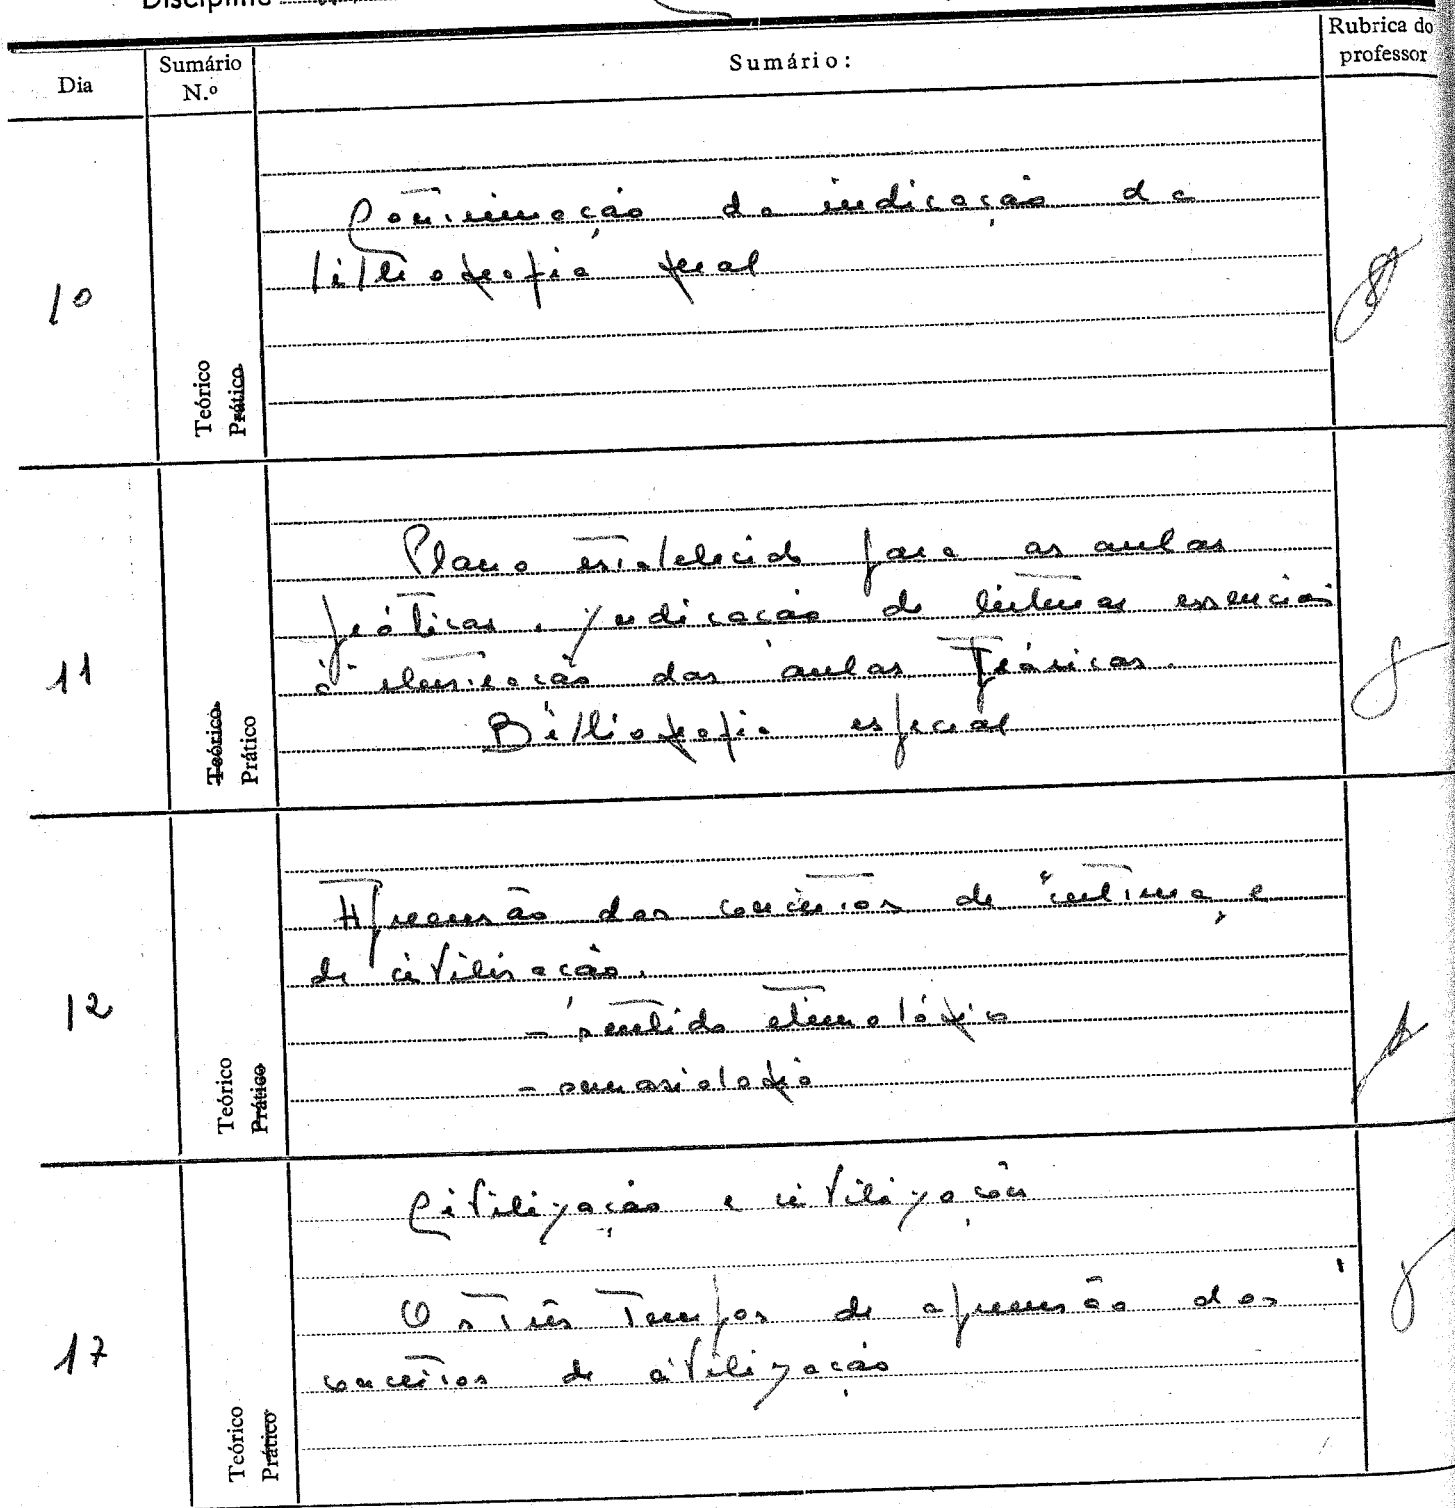 Disciplina
Dia
Sumário N.º
Sumário:
Rubrica do professor
10
Teórico
Prático
Continuação da indicação da
bibliografia geral
11
Teórico
Prático
Plano estabelecido para as aulas
práticas. Indicação de leituras essenciais
à elucidação das aulas teóricas.
Bibliografia especial
12
Teórico
Prático
Apreensão dos conceitos de cultura e
de civilização.
- sentido etimológico
- semasiologia
17
Teórico
Prático
Civilização e civilizações
Os três tempos de apreensão dos
conceitos de civilização